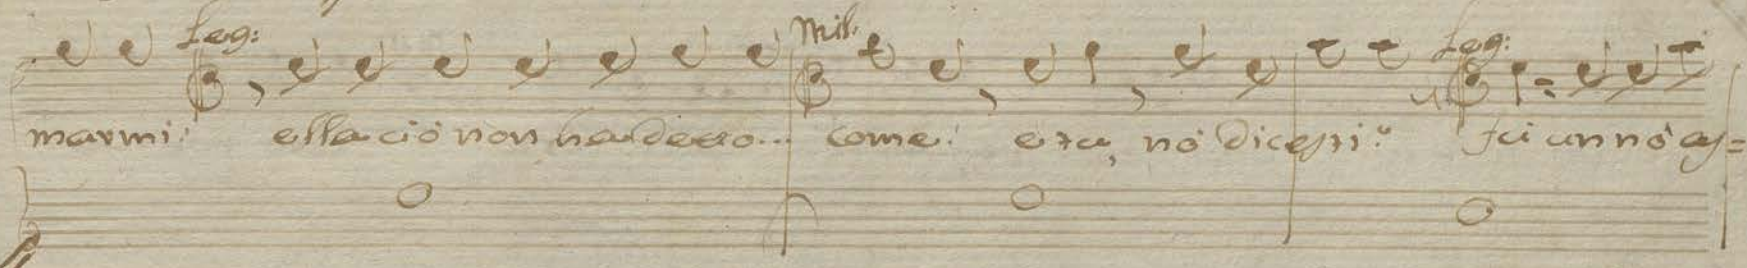 Leg: Mil. Leg:
marmi: ella ciò non ha detto... come! e tu, nò dicesti? fù un nò as=